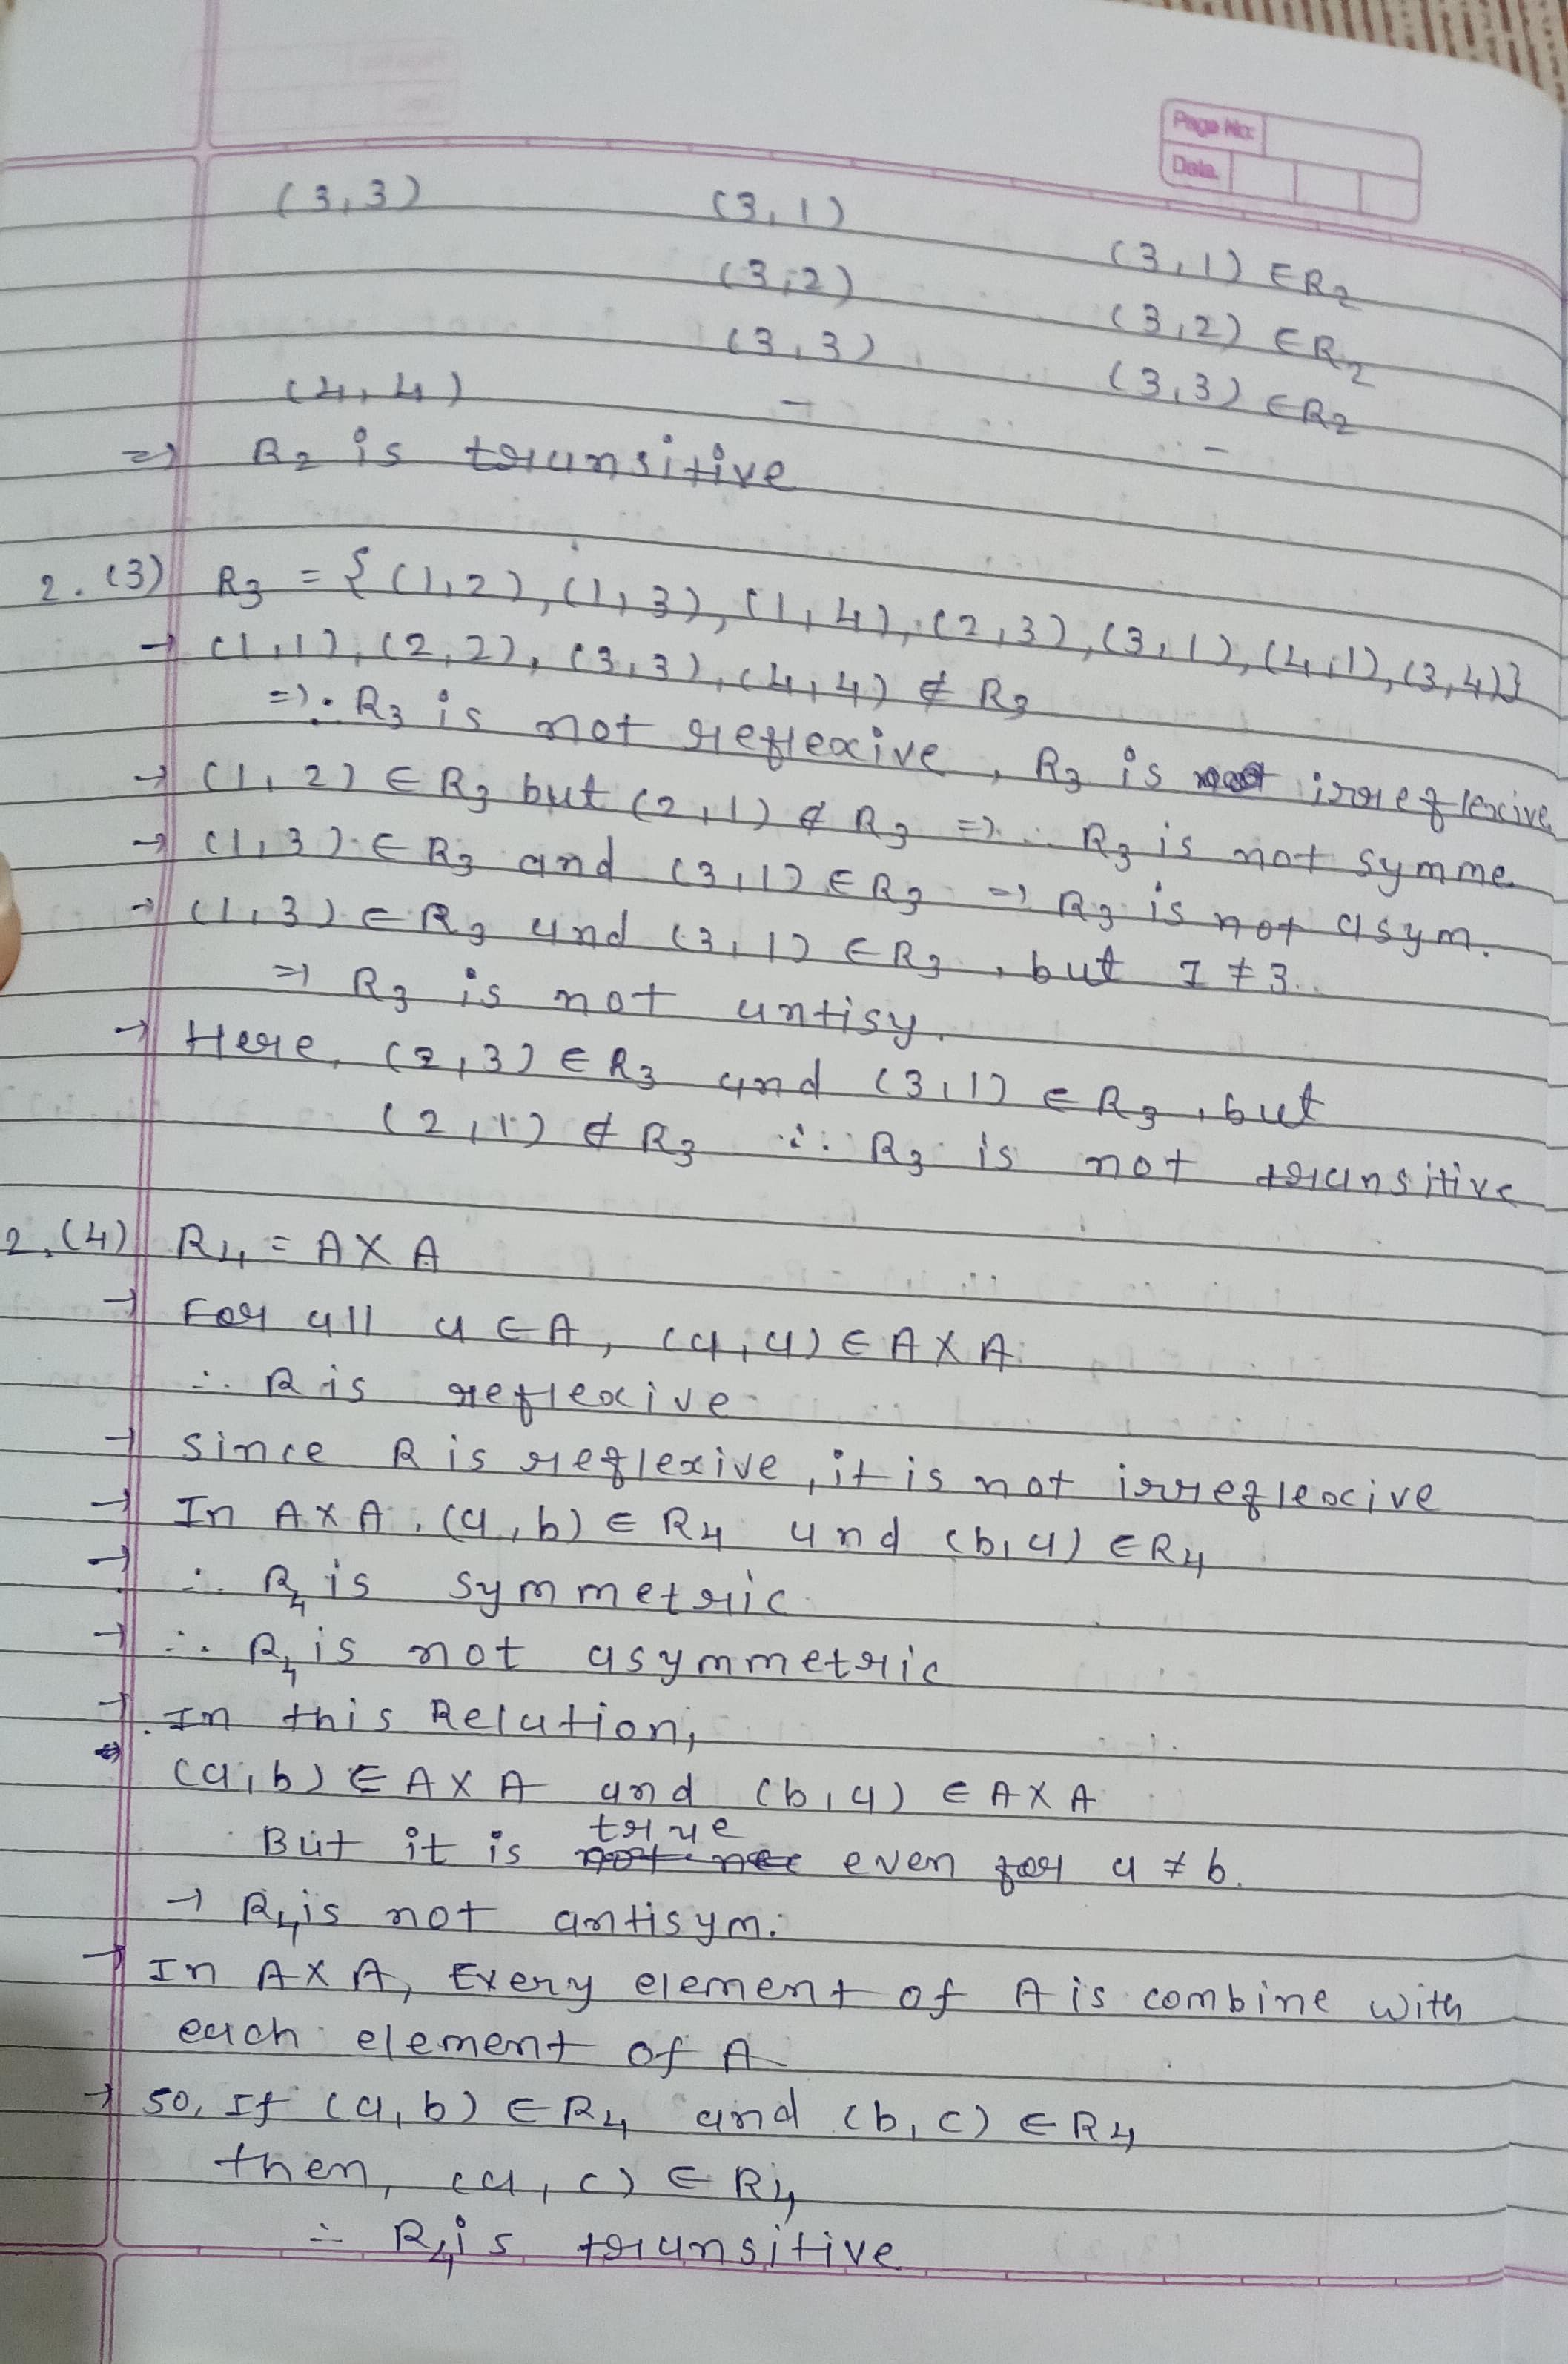 Page No:
Date.
(3,3) (3,1) (3,1) ∈ R2
(3,2) (3,2) ∈ R2
(3,3) (3,3) ∈ R2
(4,4) - -
=> R2 is transitive
2. (3) R3 = { (1,2), (1,3), (1,4), (2,3), (3,1), (4,1), (3,4)}
→ (1,1), (2,2), (3,3), (4,4) ∉ R3
=> ∴ R3 is not reflexive, R3 is irreflexive
→ (1,2) ∈ R3 but (2,1) ∉ R3 => ∴ R3 is not symme.
→ (1,3) ∈ R3 and (3,1) ∈ R3 => R3 is not asym.
→ (1,3) ∈ R3 and (3,1) ∈ R3, but 1 ≠ 3.
=> R3 is not antisy.
→ Here, (2,3) ∈ R3 and (3,1) ∈ R3, but
(2,1) ∉ R3 ∴ R3 is not transitive
2. (4) R4 = A X A
→ For all a ∈ A, (a,a) ∈ A X A
∴ R is reflexive
→ since R is reflexive, it is not irreflexive
→ In A X A, (a,b) ∈ R4 and (b,a) ∈ R4
→ ∴ R4 is symmetric
→ ∴ R4 is not asymmetric
→ In this Relation,
(a,b) ∈ A X A and (b,a) ∈ A X A
But it is true even for a ≠ b.
→ R4 is not antisym.
→ In A X A, Every element of A is combine with
each element of A
→ so, If (a,b) ∈ R4 and (b,c) ∈ R4
then, (a,c) ∈ R4
∴ R4 is transitive